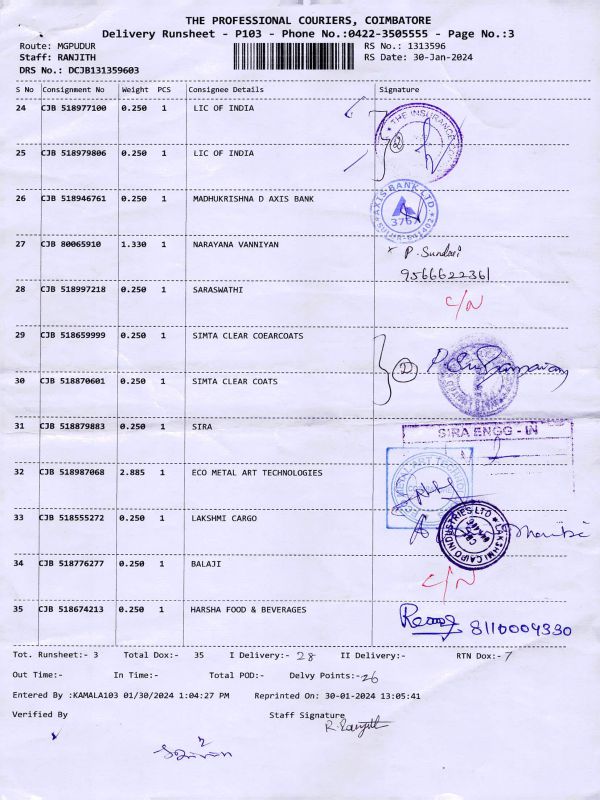 THE PROFESSIONAL COURIERS, COIMBATORE
Delivery Runsheet - P103 - Phone No.:0422-3505555 - Page No.:3
Route: MGPUDUR RS No.: 1313596
Staff: RANJITH RS Date: 30-Jan-2024
DRS No.: DCJB131359603
S No Consignment No Weight PCS Consignee Details Signature
24 CJB 518977100 0.250 1 LIC OF INDIA
THE INSURANCE
2
25 CJB 518979806 0.250 1 LIC OF INDIA
26 CJB 518946761 0.250 1 MADHUKRISHNA D AXIS BANK
AXIS BANK LTD
3767
27 CJB 80065910 1.330 1 NARAYANA VANNIYAN
P. Sundari
9566622361
28 CJB 518997218 0.250 1 SARASWATHI
C/N
29 CJB 518659999 0.250 1 SIMTA CLEAR COEARCOATS
2
30 CJB 518870601 0.250 1 SIMTA CLEAR COATS
31 CJB 518879883 0.250 1 SIRA
SIRA ENGG - IN
32 CJB 518987068 2.885 1 ECO METAL ART TECHNOLOGIES
33 CJB 518555272 0.250 1 LAKSHMI CARGO
34 CJB 518776277 0.250 1 BALAJI
C/N
35 CJB 518674213 0.250 1 HARSHA FOOD & BEVERAGES
8110004330
Tot. Runsheet:- 3 Total Dox:- 35 I Delivery:- 28 II Delivery:- RTN Dox:- 7
Out Time:- In Time:- Total POD:- Delvy Points:- 26
Entered By :KAMALA103 01/30/2024 1:04:27 PM Reprinted On: 30-01-2024 13:05:41
Verified By Staff Signature
R. Ranjith